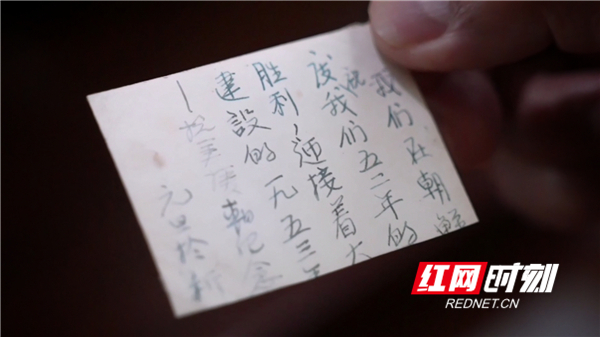 我们在朝鮮
度祝我们五二年的
胜利，迎接着大
建設的一九五三
—抗美援朝纪念
元旦於
红网时刻
REDNET.CN